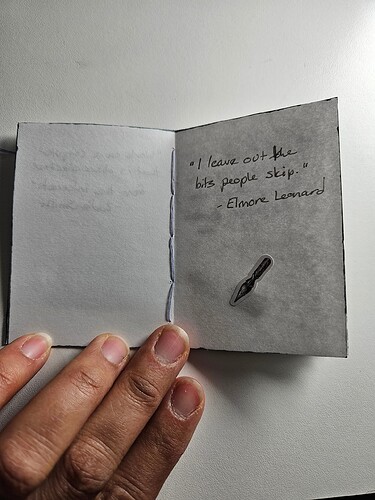 "I leave out the
bits people skip."
- Elmore Leonard